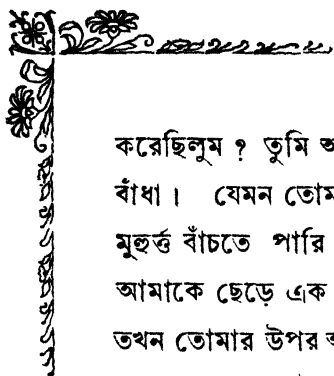 করেছিলুম ? তুমি
বাঁধা । যেমন
মুহূর্ত্ত বাঁচতে পারি
আমাকে ছেড়ে এক
তখন তোমার উপর